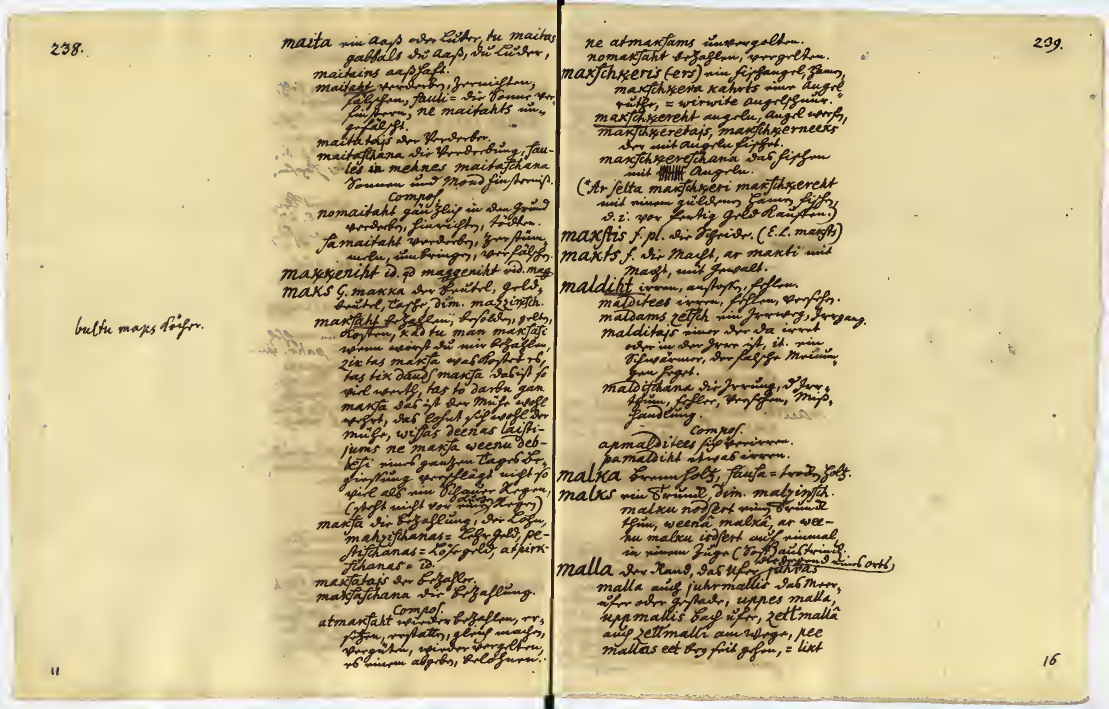 238.
maita ein Aaß oder Luder, tu maitas
gabbals du Aaß, du Luder,
maitains aaßhaft.
maitaht verderben, zernichten,
fälschen, saule = die Sonne ver-
finstern, ne maitahts un-
gefälscht.
maitatajs der Verderber.
maitaschana die Verderbung, sau-
les in mehnes maitaschana
Sonnen und Mond finsterniß.
Compos.
nomaitaht gäntzlich in den Grund
verderben, hinrichten, tödten.
samaitaht verderben, zerstüm-
meln, umbringen, verfälschen
makkeniht id. qd maggeniht vid. mag
maks G. makka der beutel, Geld-
beutel, Tasche, dim. mazzinsch.
bultu maks Köcher.
maksaht bezahlen, besolden, gelten,
Kosten, kad tu man maksasi
wenn wirst du mir bezahlen,
zik tas maksa was Kostet es,
tas tik daudf maksa das ist so
viel werth, tas to darbu gan
maksa das ist der Mühe wohl
wehrt, das lohnt sich wohl der
Mühe, wissas deenas laisti-
jums ne maksa weenu deb-
besi eines gantzen Tages be-
gießung verschlägt nicht so
viel als ein Schauer Regen,
(steht nicht vor Regen)
maksa die bezahlung, der Lohn,
mahzischanas = Lehrgeld, pe-
stischanas = Lösegeld, atpirk-
schanas = id.
maksatajs der bezahler.
maksaschana die bezahlung.
Compos.
atmaksaht wieder bezahlen, er-
setzen, erstatten, gleich machen,
vergüten, wieder vergelten,
es einem abgeben, belohnen.
11
239.
ne atmaksams unvergolten.
nomaksaht bezahlen, vergelten.
makschkeris (-ers) ein fischangel, Hamen,
makschkera kahrts eine Angel
ruthe, = wirwite Angelschnur.*
makschkereht angeln, Angel werfen,
makschkeretajs, makschkerneeks
der mit Angeln fischet.
makschkereschana das fischen
mit Angeln.
(*Ar selta makschkeri makschkereht
mit einem güldenen Hamen fischen,
d. i. vor fertig Geld Kauffen.)
makstis f. pl. die Scheide. (E. L. maksts)
makts f. die Macht, ar makti mit
Macht, mit Gewalt.
maldiht irren, anstoßen, fehlen.
malditees irren, fehlen, versehen.
maldams zelsch ein Irrweg, Irrgang.
malditajs einer der da irret
oder in der Irre ist, it. ein
Schwärmer, der falsche Meinun-
gen heget.
maldischana die Irrung, d Irr-
thum, Fehler, Versehen, Miß-
handlung.
Compos.
apmalditees sich verirren.
pamaldiht etwas irren.
malka brennholtz, sausa = trocken holtz.
malks ein Trunck, dim. malzinsch.
malku nodsert einen Trunck
thun, weenâ malkâ, ar wee-
nu malku isdsert auf einmal
in einem Zuge (Soff) austrinken.
malla der Rand, das Ufer, die Gegend eines orts, juhras
malla auch juhrmallis das Meer-
ufer oder Gestade, uppes malla,
uppmallis Bach ufer, zeltmallâ
auch zeltmalli am Wege, pee
mallas eet bey seit gehen, = likt
16